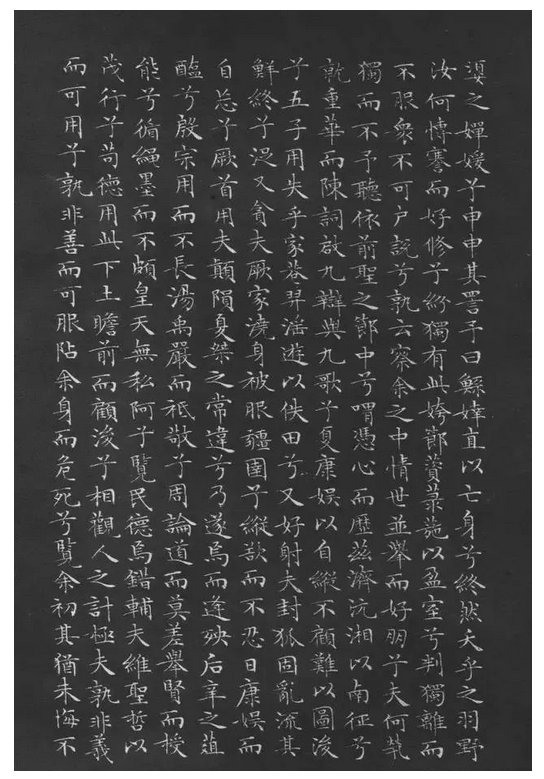 嬃之嬋媛兮申申其詈予曰鯀婞直以亡身兮終然夭乎之羽野
汝何博謇而好修兮紛獨有此姱節薋菉葹以盈室兮判獨離而
不服衆不可户說兮孰云察余之中情世並舉而好朋兮夫何煢
獨而不予聽依前聖之節中兮喟憑心而歷茲濟沅湘以南征兮
就重華而陳詞啟九辯與九歌兮夏康娛以自縱不顧難以圖後
兮五子用失乎家巷羿淫遊以佚田兮又好射夫封狐固亂流其
鮮終兮浞又貪夫厥家澆身被服彊圉兮縱欲而不忍日康娛而
自忘兮厥首用夫顛隕夏桀之常違兮乃遂焉而逢殃后辛之菹
醢兮殷宗用而不長湯禹嚴而祗敬兮周論道而莫差舉賢而授
能兮循繩墨而不頗皇天無私阿兮覽民德焉錯輔夫維聖哲以
茂行兮苟德用此下土瞻前而顧後兮相觀人之計極夫孰非義
而可用兮孰非善而可服阽余身而危死兮覽余初其猶未悔不